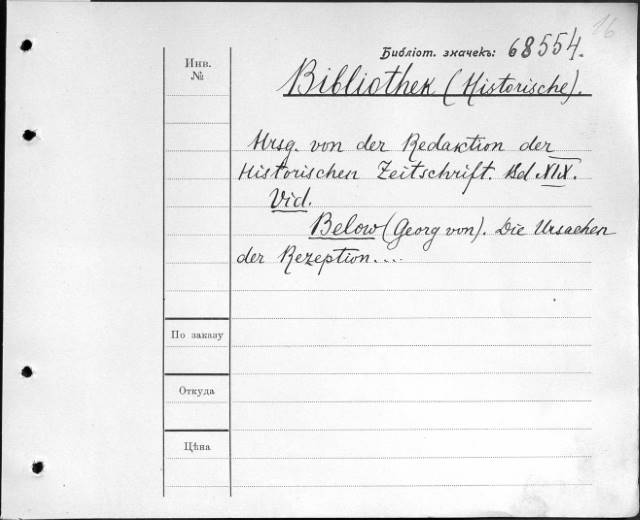 16
Библіот. значекъ: 68554.
Инв.
№
Bibliothek (Historische).
Hrsg. von der Redaktion der
Historischen Zeitschrift. Bd XIX.
Vid.
Below (Georg von). Die Ursachen
der Rezeption....
По заказу
Откуда
Цѣна